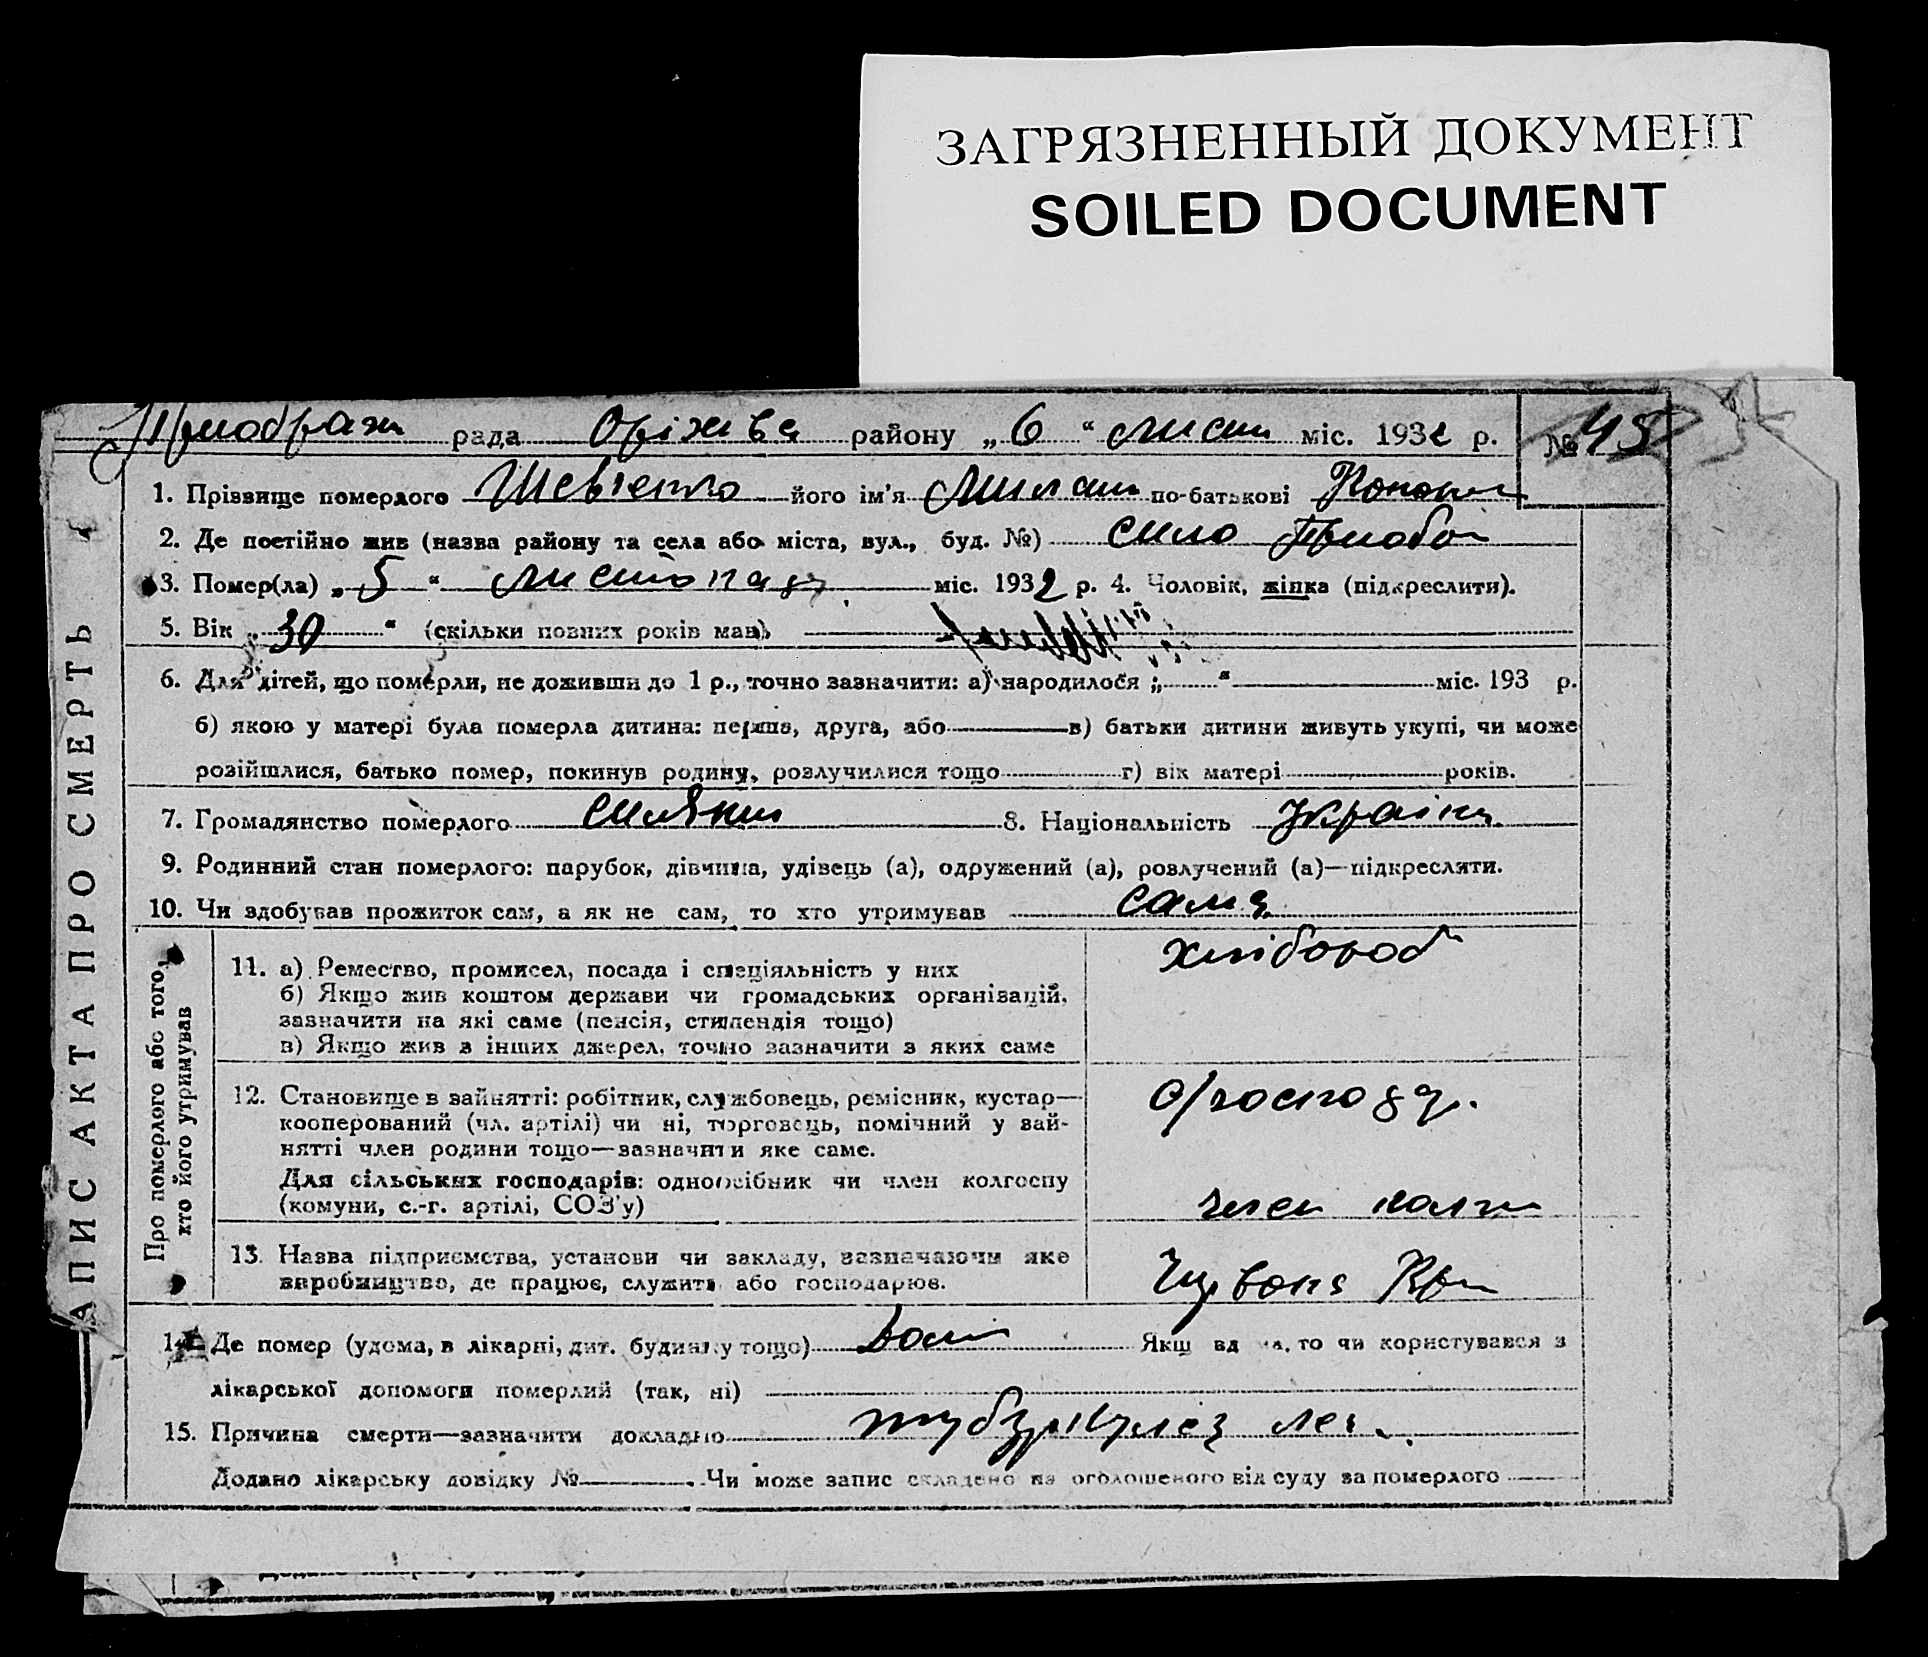 ЗАГРЯЗНЕННЫЙ ДОКУМЕНТ
SOILED DOCUMENT
рада району „ 6 “ міс. 1932 р. № 45
1. Прізвище померлого Шевченко його ім'я по-батькові
2. Де постійно жив (назва району та села або міста, вул., буд. №) село
3. Помер(ла) „ 5 “ листопаду міс. 1932 р. 4. Чоловік, жінка (підкреслити).
5. Вік „ 30 “ (скільки повних років мав)
6. Для дітей, що померли, не доживши до 1 р., точно зазначити: а) народилося „ “ міс. 193 р.
б) якою у матері була померла дитина: перша, друга, або в) батьки дитини живуть укупі, чи може
розійшлися, батько помер, покинув родину, розлучилися тощо г) вік матері років.
7. Громадянство померлого 8. Національність україн
9. Родинний стан померлого: парубок, дівчина, удівець (а), одружений (а), розлучений (а)—підкреслити.
10. Чи здобував прожиток сам, а як не сам, то хто утримував сама
11. а) Ремество, промисел, посада і спеціяльність у них хлібороб
б) Якщо жив коштом держави чи громадських організацій,
зазначити на які саме (пенсія, стипендія тощо)
в) Якщо жив з інших джерел, точно зазначити з яких саме
12. Становище в зайнятті: робітник, службовець, ремісник, кустар— с/господар.
кооперований (чл. артілі) чи ні, торговець, помічний у зай-
нятті член родини тощо—зазначити яке саме.
Для сільських господарів: одноосібник чи член колгоспу
(комуни, с.-г. артілі, СОЗ'у) член
13. Назва підприємства, установи чи закладу, зазначаючи яке
виробництво, де працює, служить або господарює. Червона
14. Де помер (удома, в лікарні, дит. будинку тощо) дома Якщ вд ма, то чи користувався з
лікарської допомоги померлий (так, ні)
15. Причина смерти—зазначити докладно туберкульоз лег.
Додано лікарську довідку № . Чи може запис складено на оголошеного від суду за померлого
АПИС АКТА ПРО СМЕРТЬ
Про померлого або того,
хто його утримував